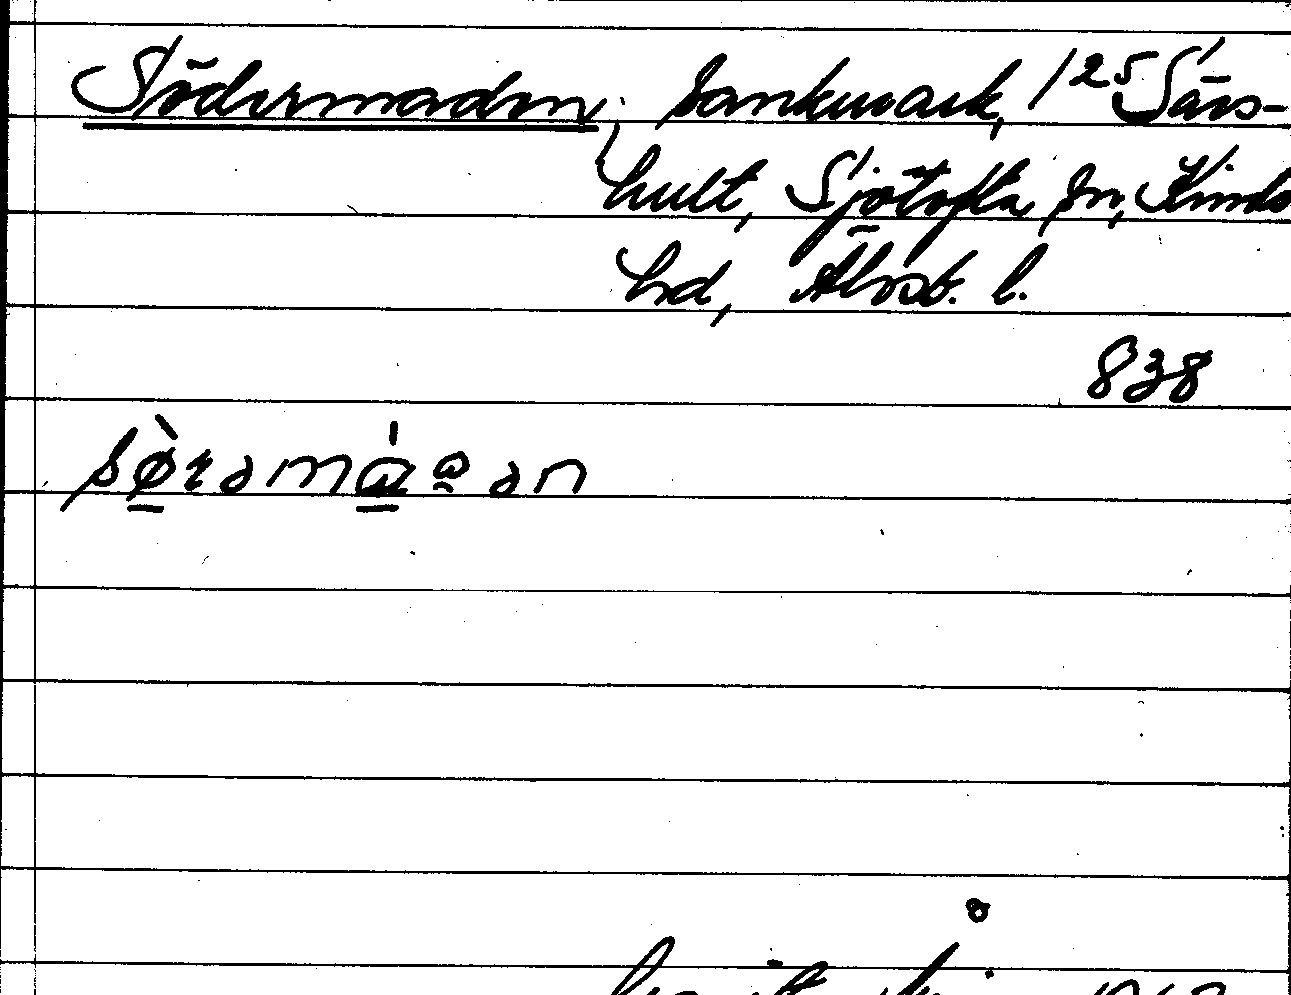 Södermaden, sankmark, 1/25 Särs-
hult, Sjötofta sn, Kinds
hd, Älvsb. l.
838